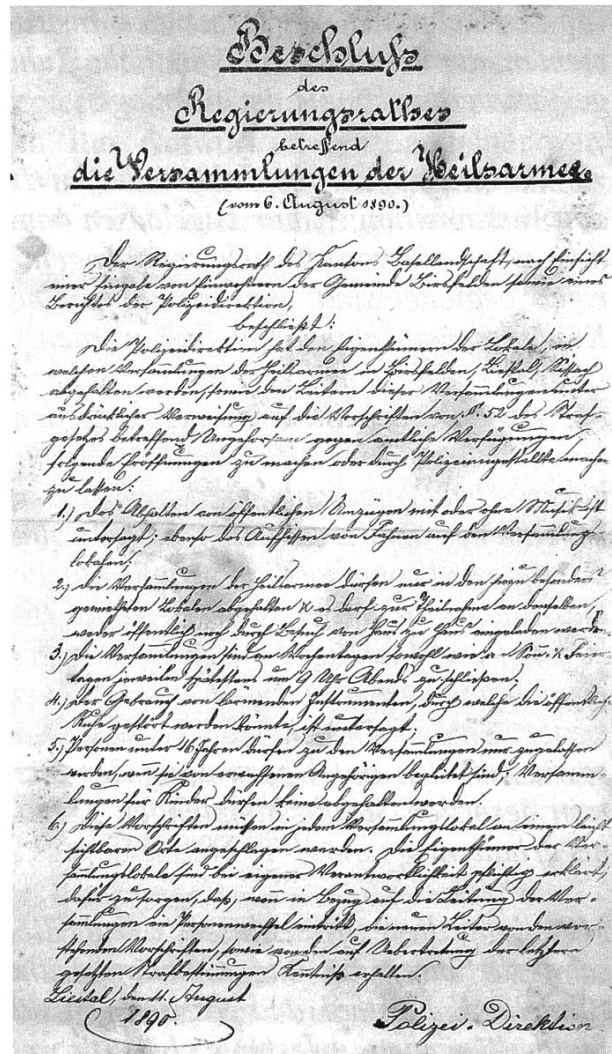 Beschluß
des
Regierungsrathes
betreffend
die Versammlungen der Heilsarmee.
(vom 6. August 1890.)
Der Regierungsrath des Kantons Basellandschaft, nach Einsicht
einer Eingabe von Einwohnern der Gemeinde Birsfelden sowie eines
Berichtes der Polizeidirektion,
beschließt:
Die Polizeidirektion hat den Eigenthümern der Lokale, in
welchen Versammlungen der Heilsarmee in Birsfelden, Liestal, Sissach
abgehalten werden, sowie den Leitern dieser Versammlungen unter
ausdrücklicher Verweisung auf die Vorschriften von §. 52 des Straf-
gesetzes betreffend Ungehorsam gegen amtliche Verfügungen,
folgende Eröffnungen zu machen oder durch Polizeiangestellte machen
zu lassen:
1.) Das Abhalten von öffentlichen Umzügen mit oder ohne Musik ist
untersagt; ebenso das Aufhissen von Fahnen auf den Versammlungs-
lokalen;
2.) Die Versammlungen der Heilsarmee dürfen nur in den hiezu besonders
gemietheten Lokalen abgehalten & es darf zur Theilnahme an denselben
weder öffentlich noch durch Besuch von Haus zu Haus eingeladen werden.
3.) Die Versammlungen sind an Wochentagen sowohl wie an Sonn- & Feier-
tagen jeweilen spätestens um 9 Uhr Abends zu schließen.
4.) Der Gebrauch von lärmenden Instrumenten, durch welche die öffentliche
Ruhe gestört werden könnte, ist untersagt;
5.) Personen unter 16 Jahren dürfen zu den Versammlungen nur zugelassen
werden, wenn sie von erwachsenen Angehörigen begleitet sind; Versamm-
lungen für Kinder dürfen keine abgehalten werden.
6.) Diese Vorschriften müssen in jedem Versammlungslokal an einem leicht
sichtbaren Orte angeschlagen werden. Die Eigenthümer der Ver-
samlungslokale sind bei eigener Verantwortlichkeit pflichtig erklärt,
dafür zu sorgen, daß, wenn in Bezug auf die Leitung der Ver-
samlungen ein Personenwechsel eintritt, die neuen Leiter von den vor-
stehenden Vorschriften, sowie von den auf Uebertretung der letztern
gesetzten Strafbestimmungen Kenntniß erhalten.
Liestal, den 11. August
1890.
Polizei-Direktion